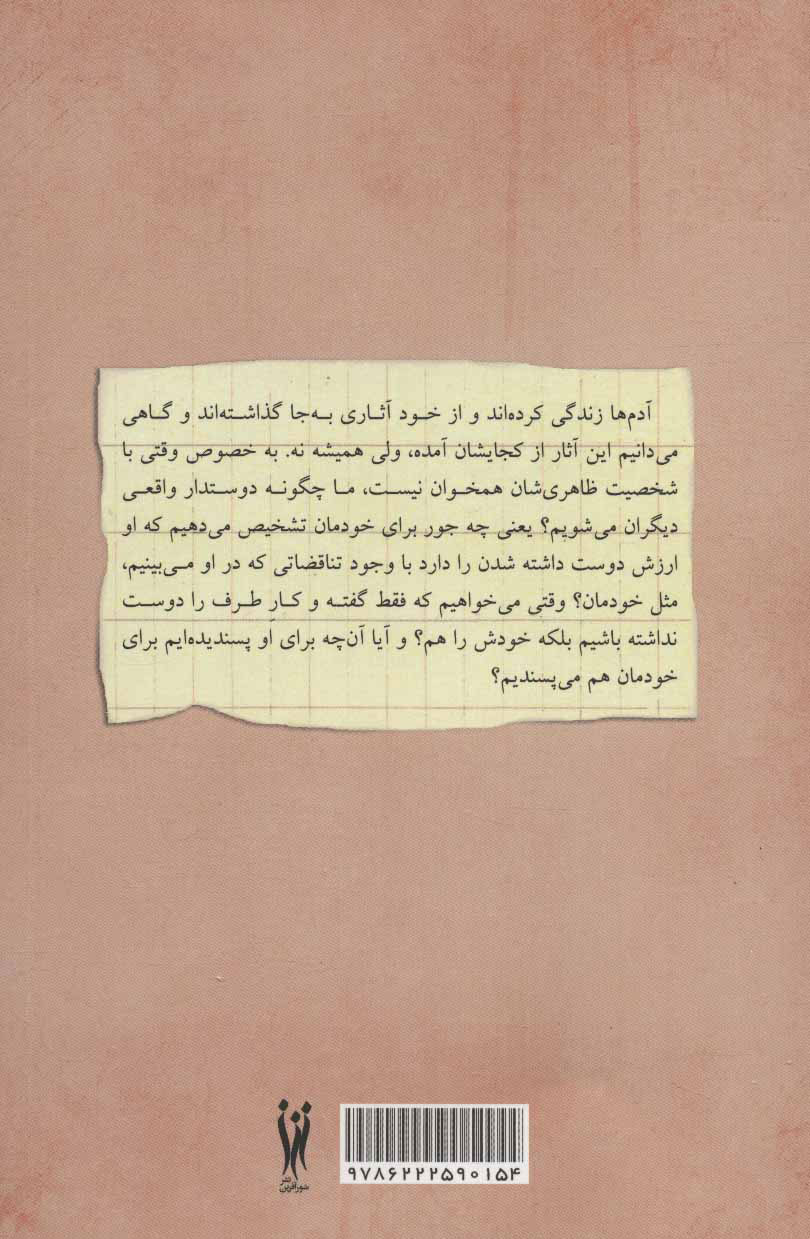 آدم‌ها زندگی کرده‌اند و از خود آثـاری بـه‌جا گذاشـته‌اند و گـاهی
می‌دانیم این آثار از کجایشان آمده، ولی همیشه نه. به خصوص وقتی با
شخصیت ظاهری‌شان همخـوان نیسـت، مـا چگونـه دوسـتدار واقعـی
دیگران می‌شویم؟ یعنی چه جور برای خودمان تشخیص می‌دهیم که او
ارزش دوست داشته شدن را دارد با وجود تناقضاتی که در او مـی‌بینیم،
مثل خودمان؟ وقتی می‌خواهیم که فقط گفتـه و کـارِ طـرف را دوسـت
نداشته باشیم بلکه خودش را هم؟ و آیا آن‌چه برای او پسندیده‌ایم برای
خودمان هم می‌پسندیم؟
نشر
شورآفرین
۹۷۸۶۲۲۲۵۹۰۱۵۴